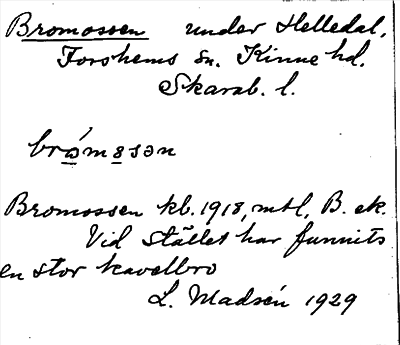 Bromossen under Helledal,
Forshems sn. Kinne hd.
Skarab. l.
brǿmåsən
Bromossen kb. 1918, mtl, B. ek.
Vid stället har funnits
en stor kavelbro
L. Madsén 1929